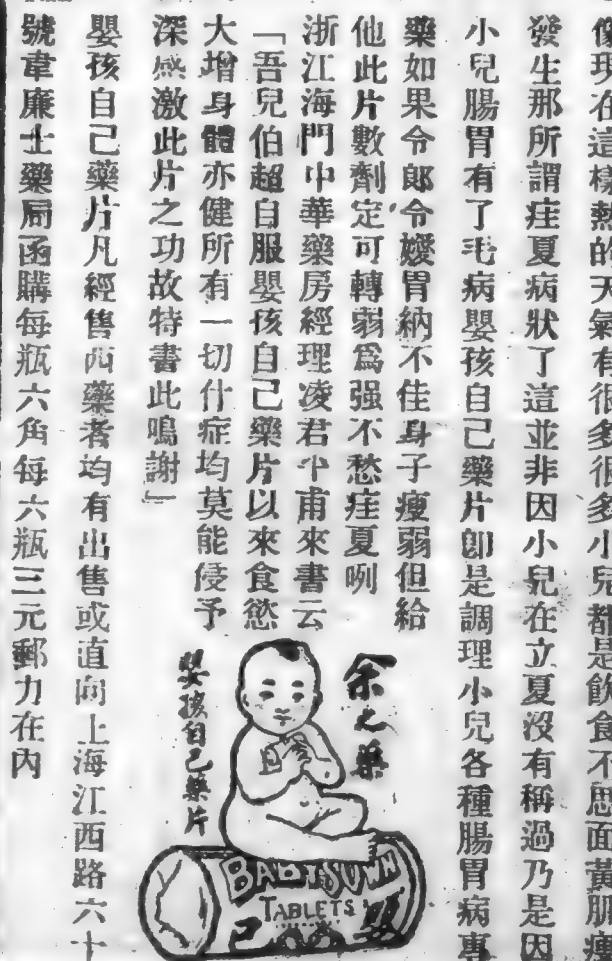 像現在這樣熱的天氣有很多很多小兒都是飲食不思面黃肌瘦
發生那所謂疰夏病狀了這並非因小兒在立夏沒有稱過乃是因
小兒腸胃有了毛病嬰孩自己藥片卽是調理小兒各種腸胃病專
藥如果令郎令嬡胃納不佳身子瘦弱但給
他此片數劑定可轉弱爲强不愁疰夏咧
浙江海門中華藥房經理凌君甫來書云
「吾兒伯超自服嬰孩自己藥片以來食慾
大增身體亦健所有一切什症均莫能侵予
深感激此片之功故特書此鳴謝」
嬰孩自己藥片凡經售西藥者均有出售或直向上海江西路六十
號韋廉士藥局函購每瓶六角每六瓶三元郵力在內
余之藥
嬰孩自己藥片
BABY'S OWN
TABLETS
己